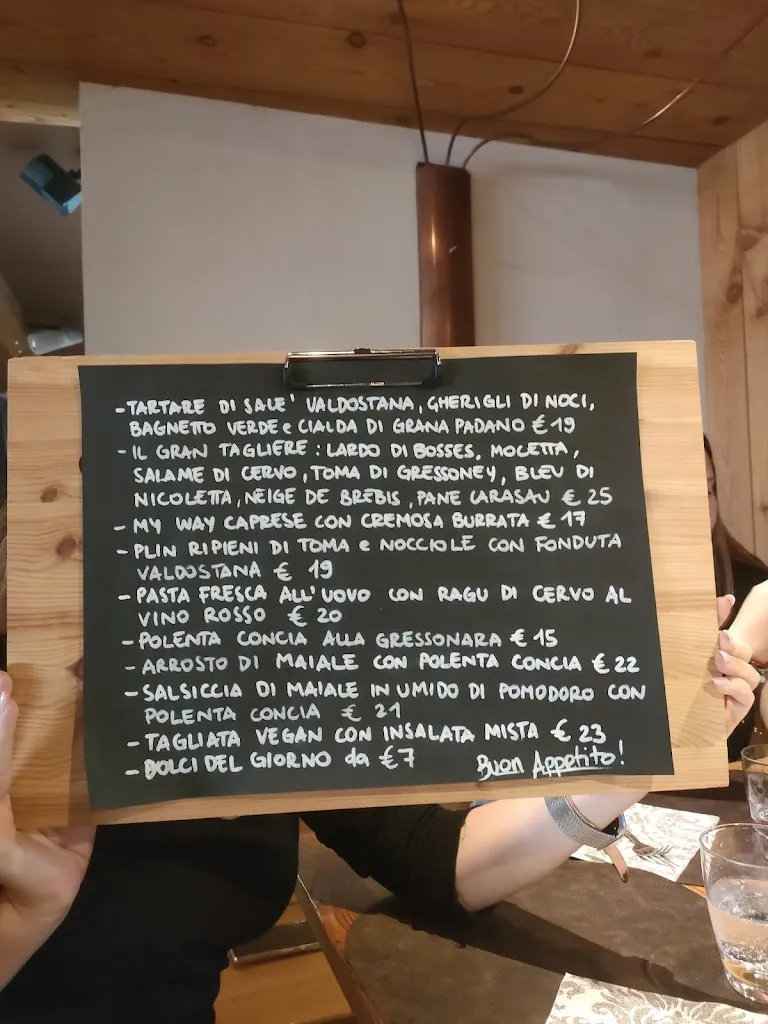 - TARTARE DI SALE' VALDOSTANA, GHERIGLI DI NOCI,
BAGNETTO VERDE e CIALDA DI GRANA PADANO € 19
- IL GRAN TAGLIERE : LARDO DI BOSSES, MOCETTA,
SALAME DI CERVO, TOMA DI GRESSONEY, BLEU DI
NICOLETTA, NEIGE DE BREBIS, PANE CARASAU € 25
- MY WAY CAPRESE CON CREMOSA BURRATA € 17
- PLIN RIPIENI DI TOMA e NOCCIOLE CON FONDUTA
VALDOSTANA € 19
- PASTA FRESCA ALL'UOVO CON RAGU DI CERVO AL
VINO ROSSO € 20
- POLENTA CONCIA ALLA GRESSONARA € 15
- ARROSTO DI MAIALE CON POLENTA CONCIA € 22
- SALSICCIA DI MAIALE IN UMIDO DI POMODORO CON
POLENTA CONCIA € 21
- TAGLIATA VEGAN CON INSALATA MISTA € 23
- DOLCI DEL GIORNO da €7 Buon Appetito!